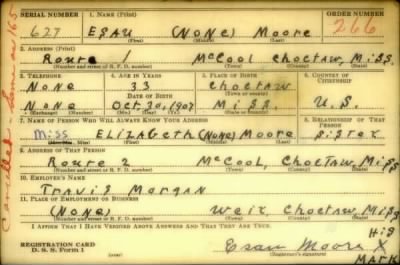 SERIAL NUMBER 1. NAME (Print) ORDER NUMBER
627 ESAU (NONE) MOORE 266
(First) (Middle) (Last)
2. ADDRESS (Print)
Route McCool Choctaw, Miss.
(Number and street or R. F. D. number) (Town) (County) (State)
3. TELEPHONE 4. AGE IN YEARS 5. PLACE OF BIRTH 6. COUNTRY OF CITIZENSHIP
None 33 Choctaw
DATE OF BIRTH (Town or county)
None Oct. 20, 1907 Miss. U.S.
(Exchange) (Number) (Mo.) (Day) (Yr.) (State or country)
7. NAME OF PERSON WHO WILL ALWAYS KNOW YOUR ADDRESS 8. RELATIONSHIP OF THAT PERSON
Miss ELIZABETH (NONE) MOORE Sister
(Mr., Mrs., Miss) (First) (Middle) (Last)
9. ADDRESS OF THAT PERSON
Route 2 McCool, Choctaw, Miss
(Number and street or R. F. D. number) (Town) (County) (State)
10. EMPLOYER'S NAME
Travis Morgan
11. PLACE OF EMPLOYMENT OR BUSINESS
(None) Weir, Choctaw, Miss
(Number and street or R. F. D. number) (Town) (County) (State)
I AFFIRM THAT I HAVE VERIFIED ABOVE ANSWERS AND THAT THEY ARE TRUE.
His
REGISTRATION CARD Esau Moore X
D. S. S. Form 1 (Registrant's signature) Mark
Cancelled - Same as 165